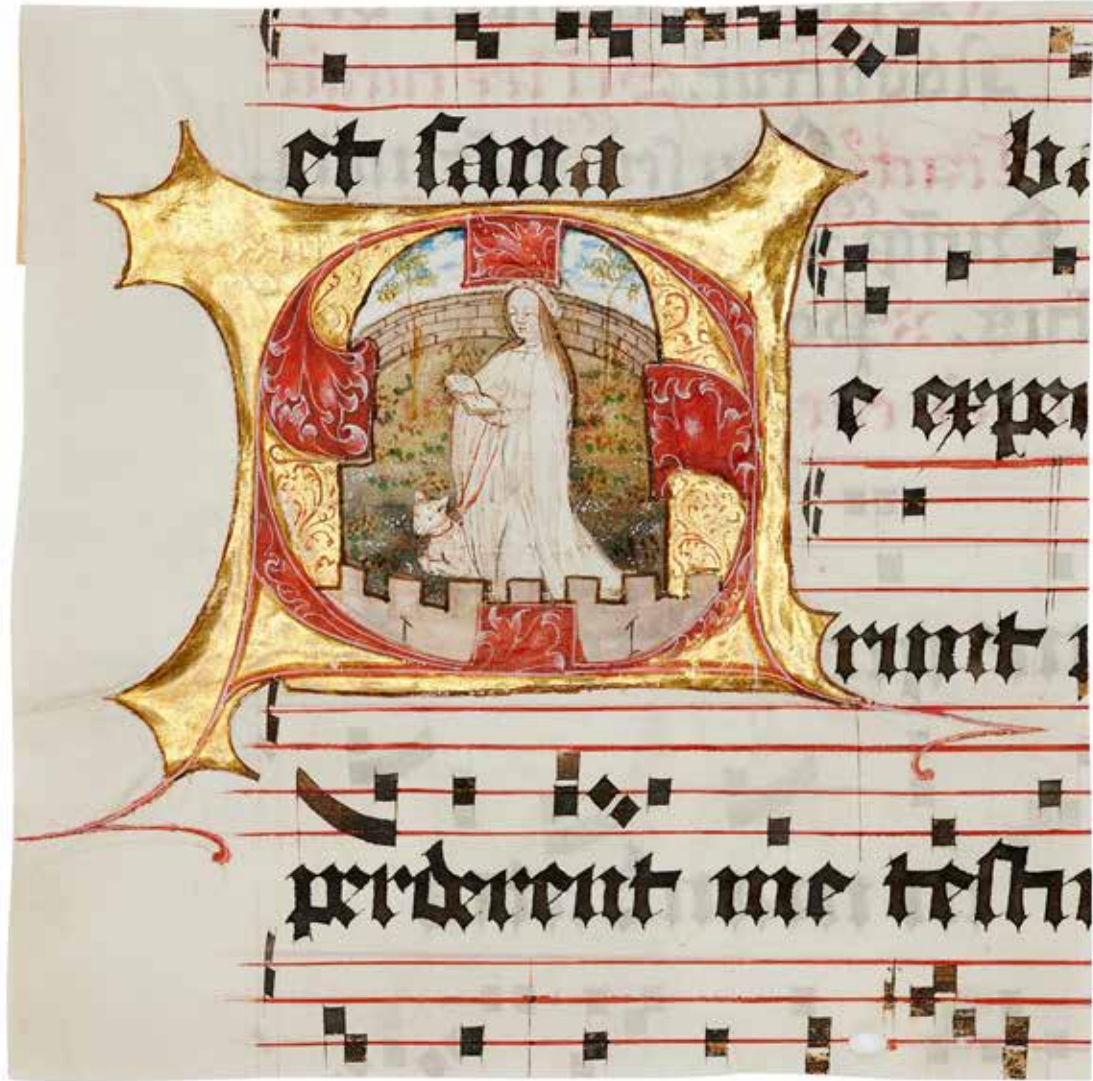 et sana ba
Me expec
runt p
perderent me testi